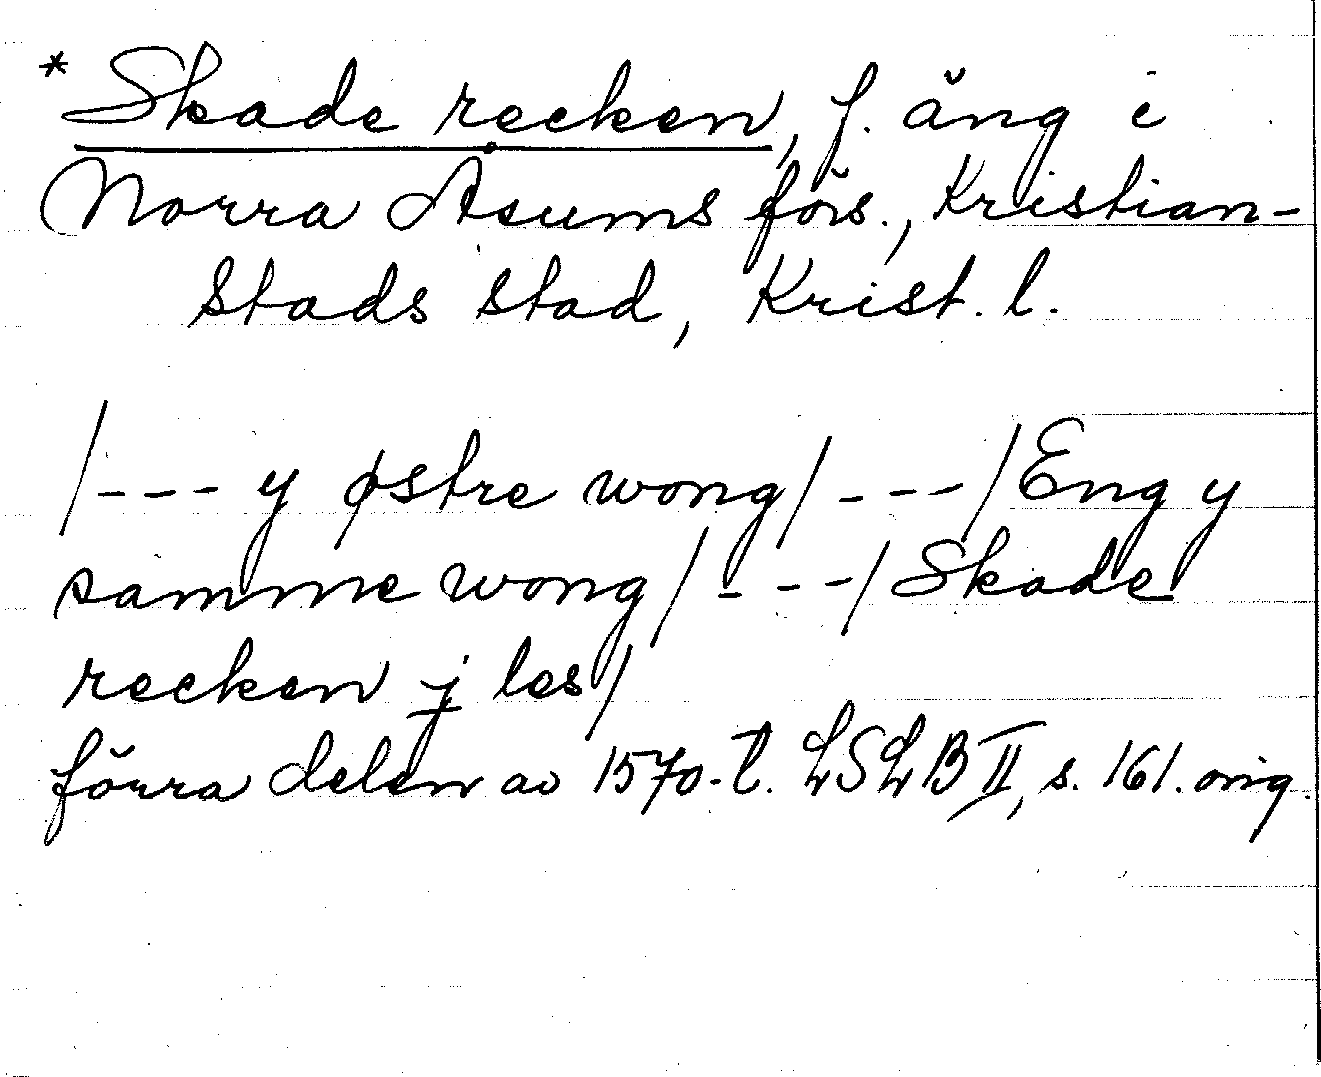 * Skade recken, f. äng i
Norra Åsums förs., Kristian-
stads stad, Krist. l.
/--- y østre wong/ ---/Eng y
samme wong/ ---/Skade
recken j les/
förra delen av 1570-t. LSLB II, s. 161. orig.